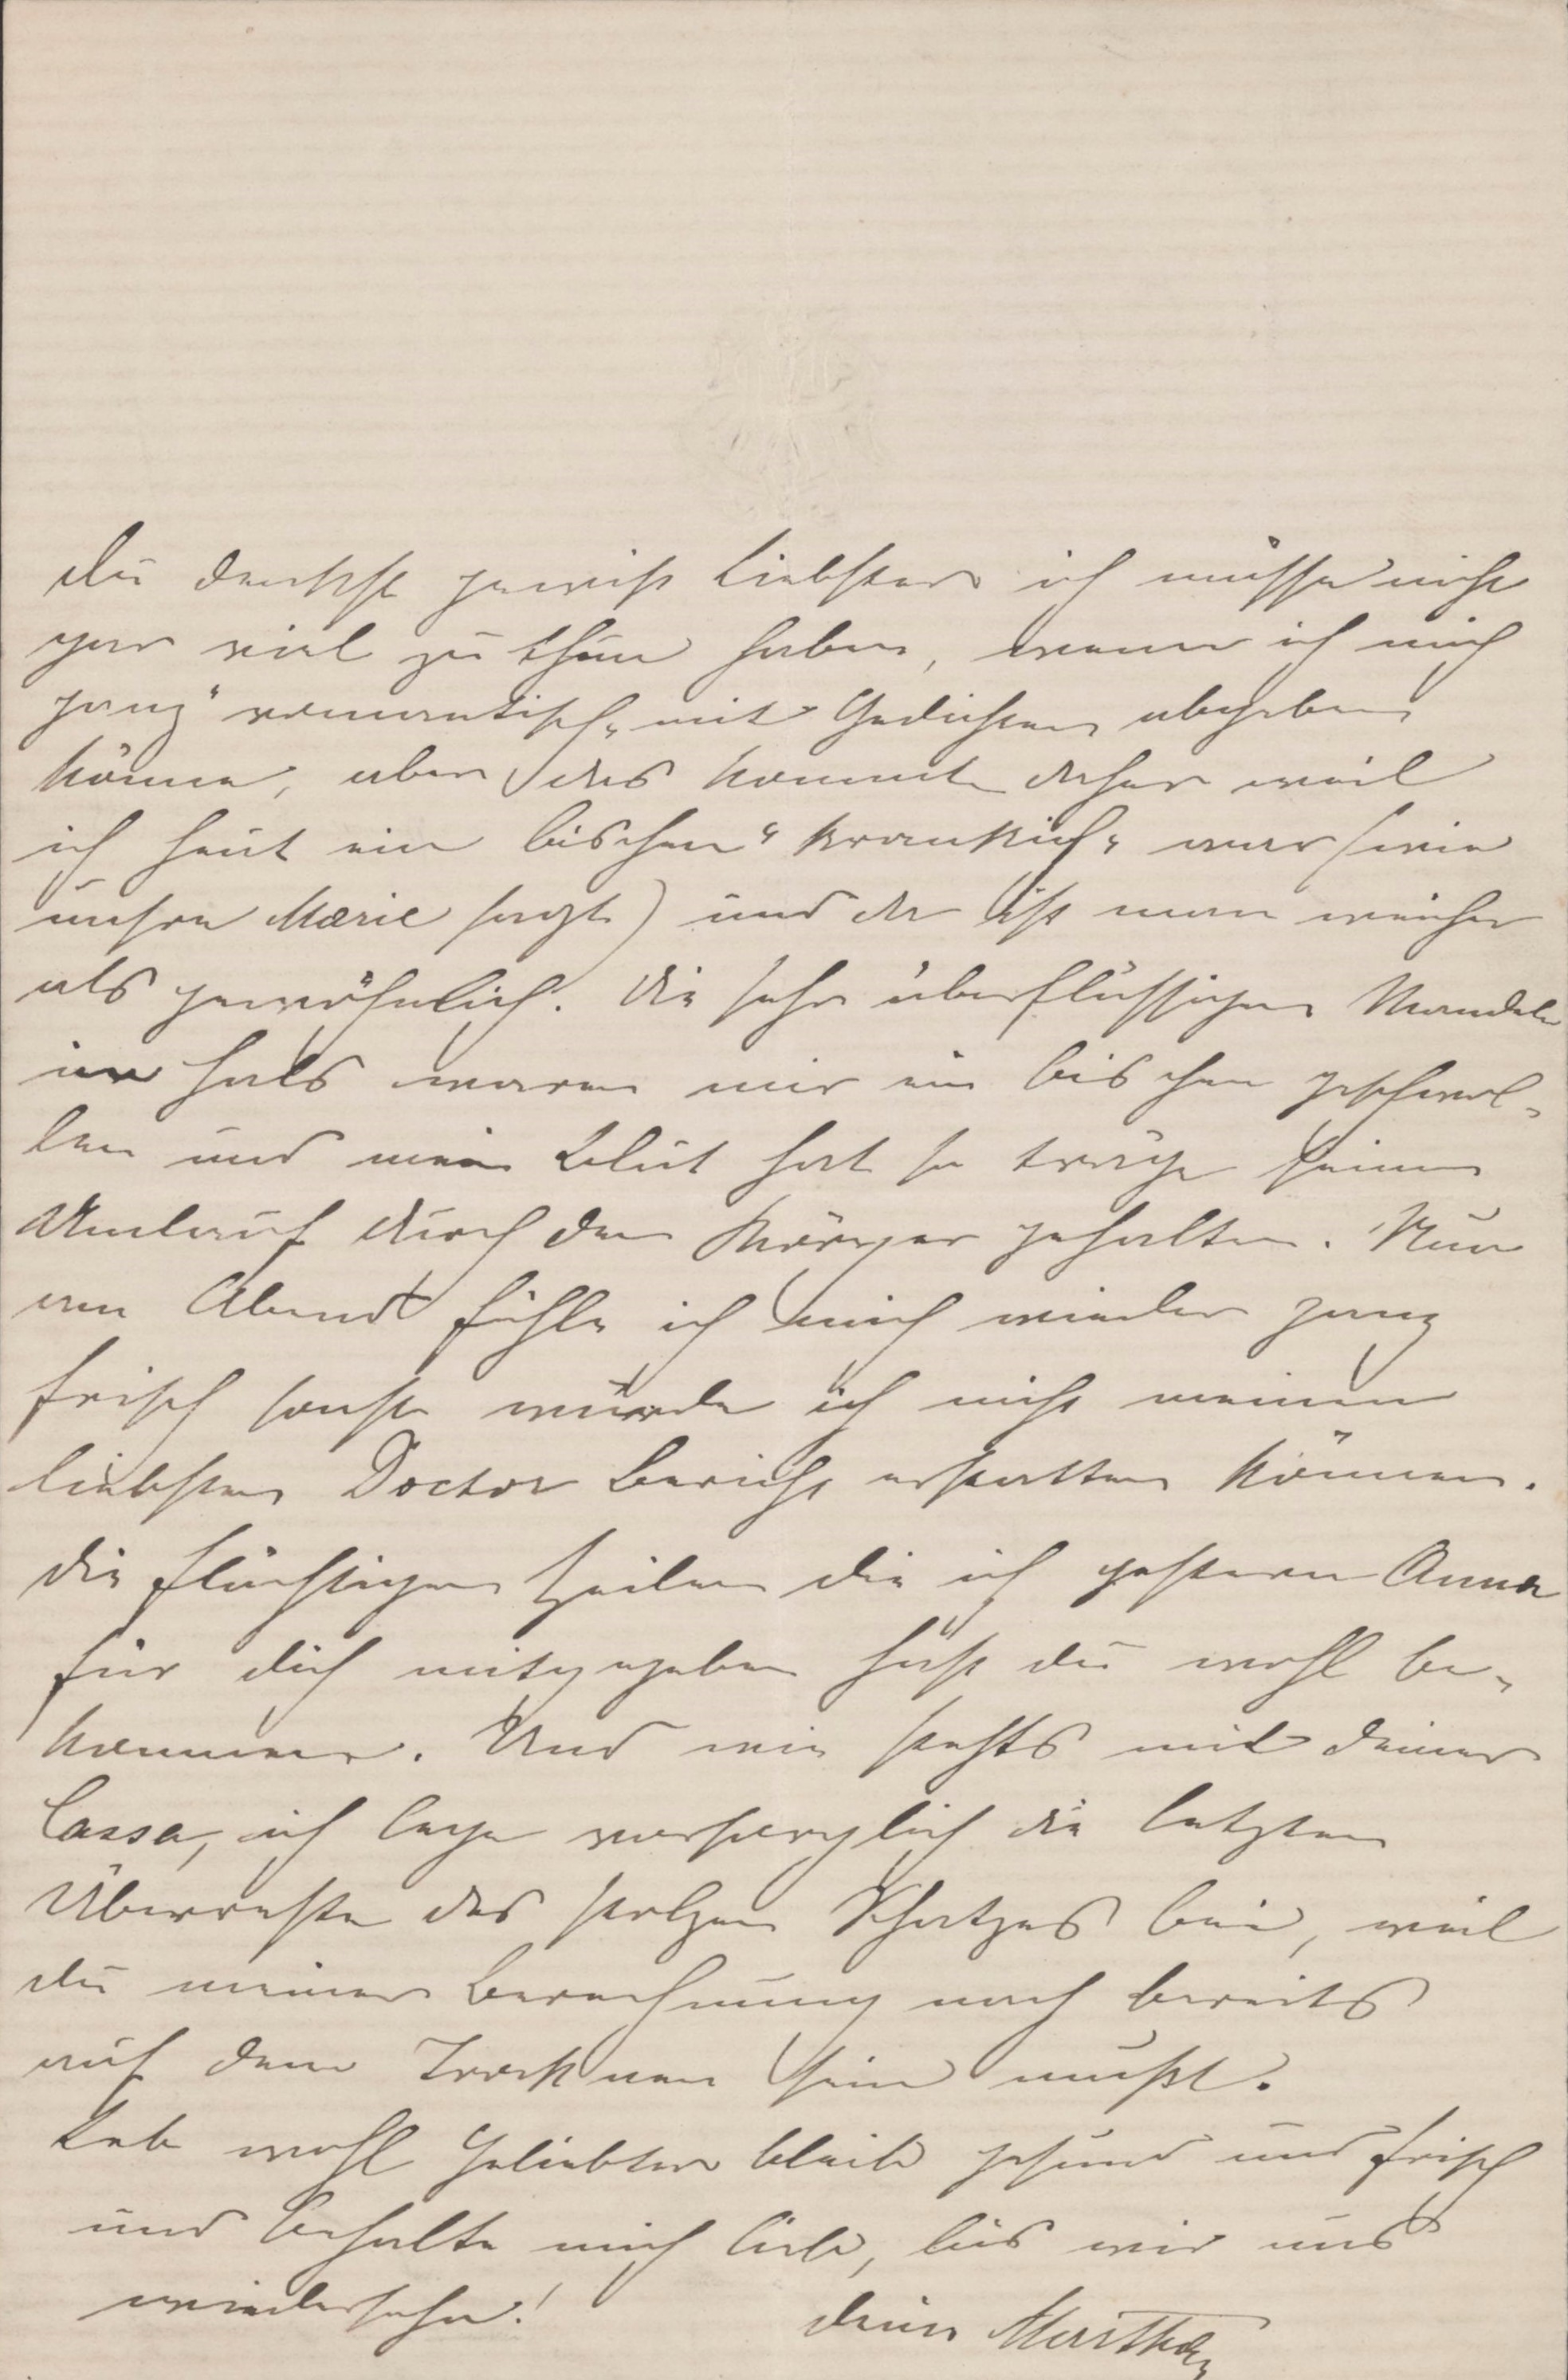 Du denkst gewiß Liebster ich müsse nicht
gar viel zu thun haben, wenn ich mich
ganz "romantisch" mit Gedichten abgeben
könne, aber das kommt daher weil
ich heut ein bischen "krankich" war (wie
unsre Marie sagt) und da ist man weicher
als gewöhnlich. Die sehr überflüssigen Mandeln
im Hals waren mir ein bischen geschwol-
len und mein Blut hat so träge seinen
Umlauf durch den Körper gehalten. Nun
am Abend fühle ich mich wieder ganz
frisch sonst würde ich nicht meinem
liebsten Doctor Bericht erstatten können.
Die flüchtigen Zeilen die ich gestern Anna
für dich mitgegeben hast du wohl be-
kommen. Und wie stehts mit deiner
Cassa, ich lege vorsorglich die letzten
Überreste des stolzen Schatzes bei, weil
du meiner Berechnung nach bereits
auf dem Trocknen sein mußt.
Leb wohl Geliebter bleib gesund und frisch
und behalte mich lieb, bis wir uns
wiedersehn!
deine Marthe